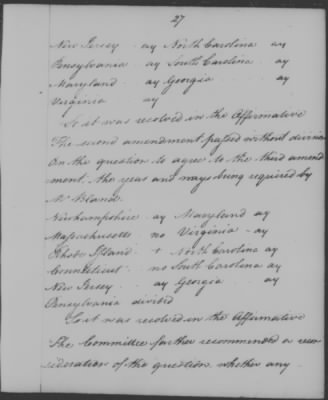 27
New Jersey . ay North Carolina ay
Pensylvania . ay South Carolina . ay
Maryland . ay Georgia . ay
Virginia ay
So it was resolved in the affirmative
The second amendment passed without division
On the question to agree to the third amend
ment, the yeas and nays being required by
Mr Bland
Newhampshire . ay Maryland ay
Massachusetts no Virginia . ay
Rhode Island + North Carolina ay
Connecticut . no South Carolina ay
New Jersey . ay Georgia . ay
Pensylvania divided
So it was resolved in the affirmative
The Committee farther recommended a recon
sideration of the question, whether any